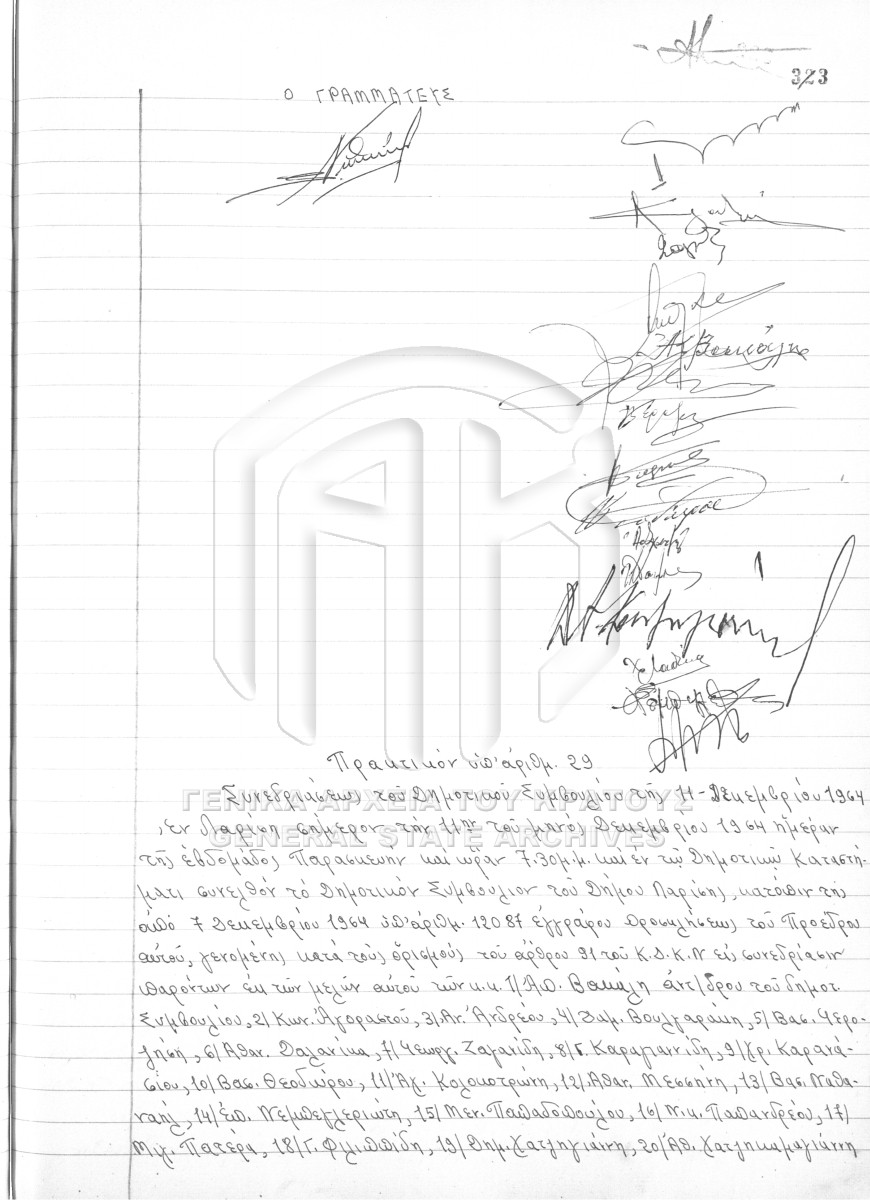 323
Ο ΓΡΑΜΜΑΤΕΥΣ
Πρακτικόν ὑπ' ἀριθμ. 29
Συνεδριάσεως τοῦ Δημοτικοῦ Συμβουλίου τῆς 11-Δεκεμβρίου 1964
ΓΕΝΙΚΑ ΑΡΧΕΙΑ ΤΟΥ ΚΡΑΤΟΥΣ
Ἐν Λαρίσῃ σήμερον τήν 11ην τοῦ μηνός Δεκεμβρίου 1964 ἡμέραν
GENERAL STATE ARCHIVES
τῆς ἑβδομάδος Παρασκευήν καί ὥραν 7.30 μ.μ. καί ἐν τῷ Δημοτικῷ Καταστή-
ματι συνελθόν τό Δημοτικόν Συμβούλιον τοῦ Δήμου Λαρίσης, κατόπιν τῆς
ἀπό 7 Δεκεμβρίου 1964 ὑπ' ἀριθμ. 12087 ἐγγράφου προσκλήσεως τοῦ Προέδρου
αὐτοῦ, γενομένης κατά τούς ὁρισμούς τοῦ ἄρθρου 91 τοῦ Κ.Δ.Κ.Ν εἰς συνεδρίασιν
παρόντων ἐκ τῶν μελῶν αὐτοῦ τῶν κ.κ. 1/Ἀπ. Βακάλη ἀντ/δρου τοῦ δημοτ.
Συμβουλίου, 2/Κων. Ἀγοραστοῦ, 3/Αν. Ἀνδρέου, 4/Ζαμ. Βουλγαράκη, 5/Βασ. Γερο-
γιάννη, 6/Αθαν. Δαλανίκα, 7/Γεωργ. Ζαγανίδη, 8/Γ. Καραγιαννίδη, 9/Χρ. Καρανά-
σίου, 10/Βασ. Θεοδώρου, 11/Ἀγ. Κολοκοτρώνη, 12/Αθαν. Μεσσήνη, 13/Βασ. Ναθα-
ναήλ, 14/ἐπ. Νεμπεγλεριώτη, 15/Μεν. Παπαδοπούλου, 16/Νικ. Παπανδρέου, 17/
Μιχ. Πατέρα, 18/Γ. Φιλιππίδη, 19/Δημ. Χατζηγιάννη, 20/Αθ. Χατζηκαμαγιάννη